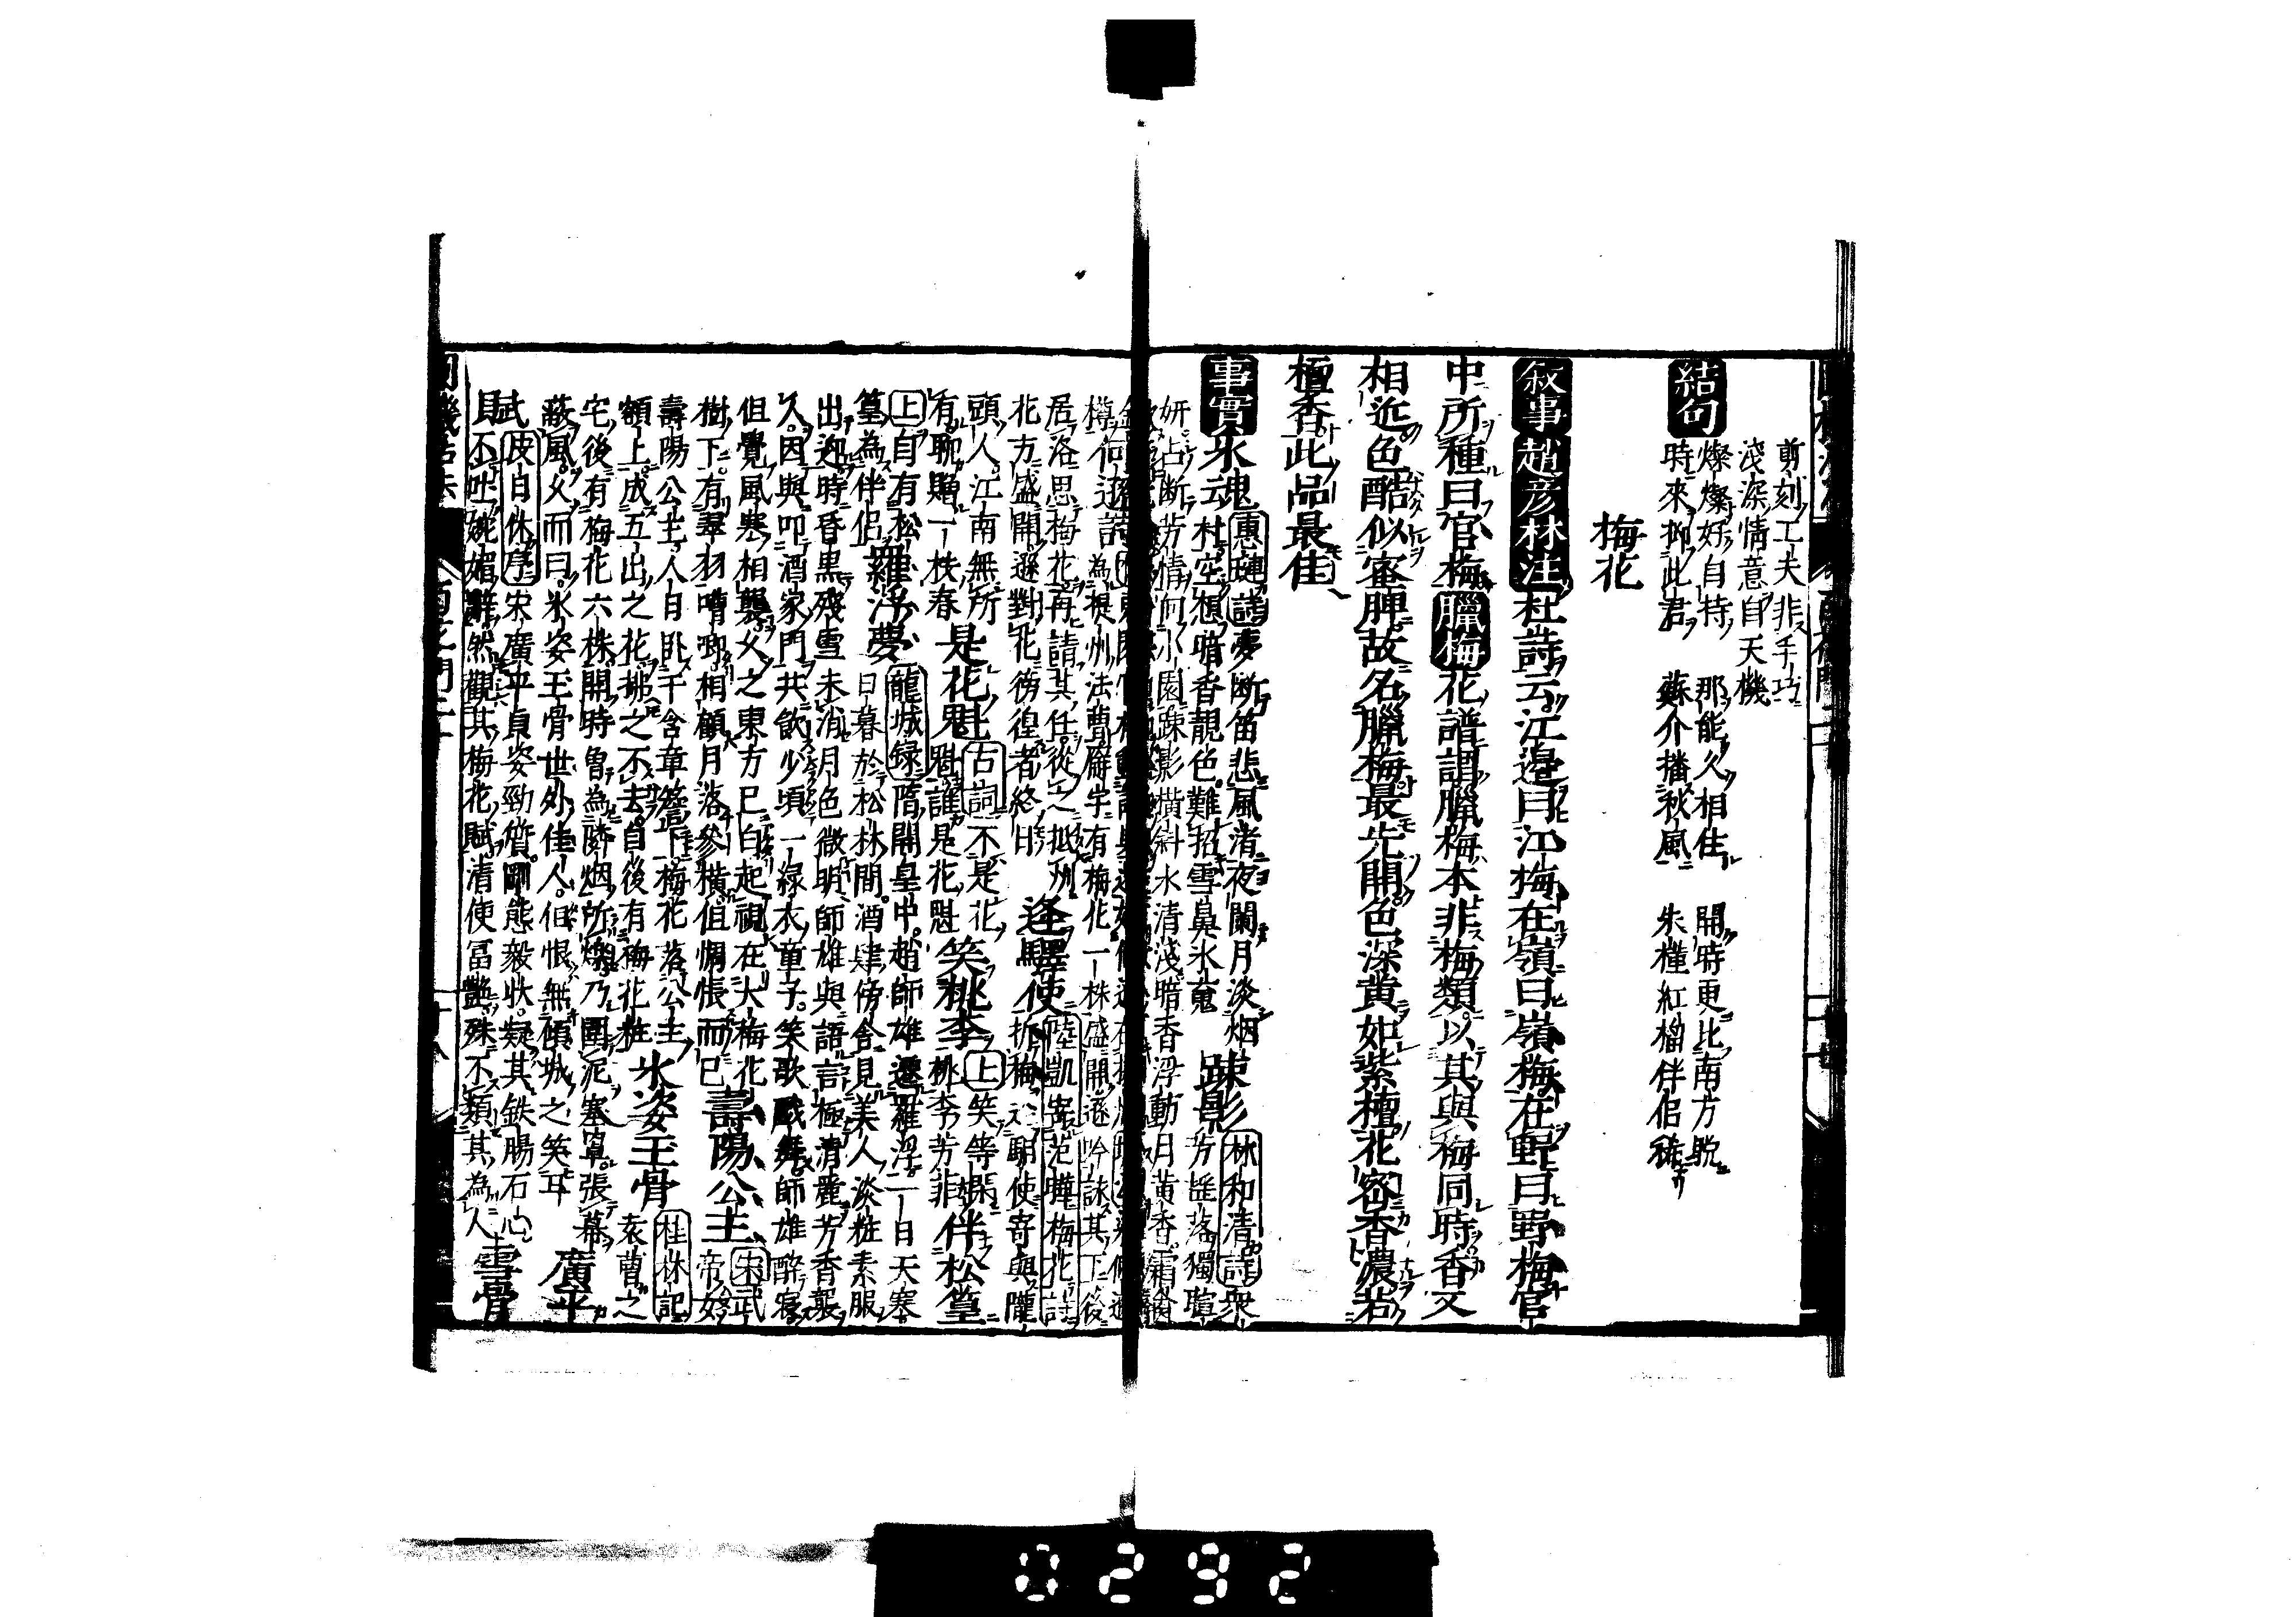 剪刻工夫非手巧
淺深情意自天機
結句
燦燦好自持 那能久相住 開時更比南方晩
時來抑此君 蘇介播秋風 朱槿紅榴伴侶稀
梅花
敘事 趙彥林注 杜詩云江邊曰江梅在嶺曰嶺梅在野曰野梅官
中所種曰官梅 臘梅 花譜謂臘梅本非梅類以其與梅同時香又
相近色酷似蜜脾故名臘梅最先開色深黄如紫檀花密香濃若
檀香此品最佳
事實 氷魂 惠璉詩 夢斷笛悲風渚夜闌月淡烟
村空想暗香靚色難招雪鼻氷䰟 踈影 林和清詩 衆
芳揺落獨暄
妍占断芳情向小園踈影橫斜水清淺暗香浮動月黄香霜禽
樽 何遜詩 為楊州法曹廨宇有梅花一株盛開遜吟詠其下後
居洛思梅花再請其任從之抵州
花方盛開遜對花徬徨者終日 逢驛使 陸凱寄范曄梅花詩
折梅逢驛使寄與隴
頭人江南無所
有聊贈一枝春 是花魁 古詞 不是花
魁誰是花魁 笑桃李 上 笑等閑
桃李芳菲 伴松篁
上 自有松
篁為伴侶 羅浮夢 龍城録 隋開皇中趙師雄遷羅浮一日天寒
日暮於松林間酒肆傍舍見美人淡粧素服
出迎時昏黒殘雪未消月色微明師雄與語言極清麗芳香襲
人因與叩酒家門共飲少頃一緑衣童子笑歌戯舞師雄醉寢
但覺風寒相襲久之東方已白起視在大梅花
樹下有翠羽嘈啾相顧月落參橫但惆悵而已 壽陽公主 宋武
帝女
壽陽公主人日臥于含章簷下梅花落公主
額上成五出之花拂之不去自後有梅花粧 氷姿玉骨 桂林記
袁曹之
宅後有梅花六株開時曽為鄰烟所爍乃團泥塞竃張幕
蔽風久而曰氷姿玉骨世外佳人但恨無傾城之笑耳 廣平
賦 皮日休序 宋廣平貞姿勁質剛態毅狀疑其鉄腸石心
不吐婉媚辭然觀其梅花賦清便冨艷殊不類其為人 雪骨